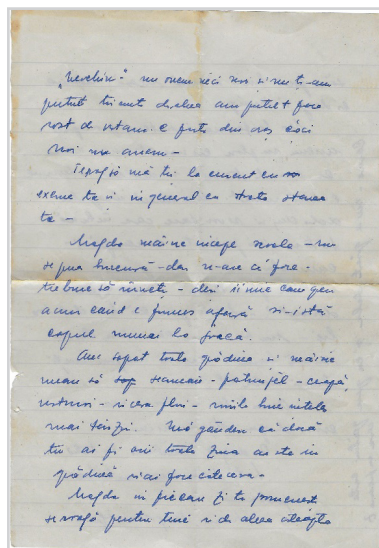 "Nerchin" - nu avem nici noi si nu ti-am
putut trimite da, alea am putut face
rost de vitam. C forte din oraș căci
noi nu avem -
Te rog să mă ții la curent cu
exeme ta și în general cu toata starea
ta -
Magda mâine începe școala - nu
se prea bucură - dar n-are ce face -
trebuie să învețe - deși ii vine cam greu
acum când e frumos afară și-i stă
capul numai la joacă.
Am săpat toata grădina și mâine
vreau să semăn - pătrunjel - ceapă,
usturoi - și ceva flori -
mai târziu. Mă gândeam că dacă
tu ai fi aici toată ziua ai sta în
grădină și ai face câte ceva -
Magda în fiecare zi te pomenește
se roagă pentru tine și de aceea